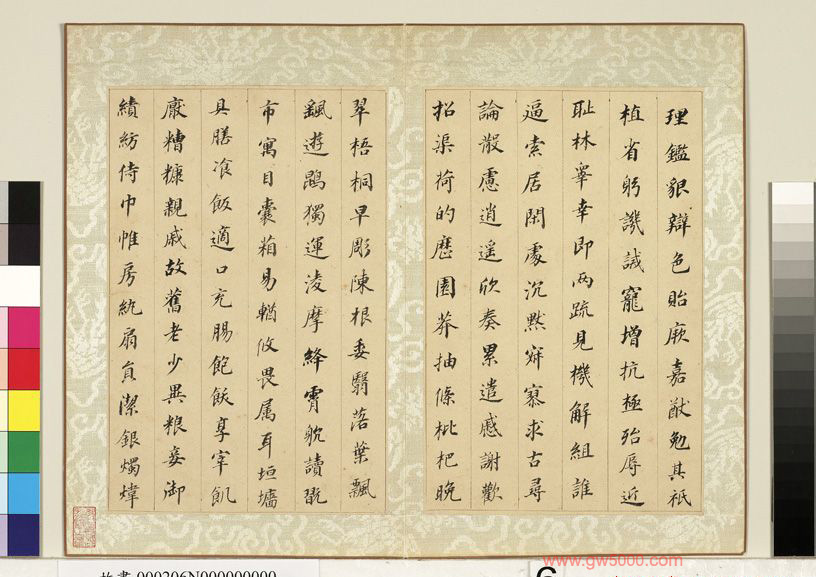 理鑑貌辯色貽厥嘉猷勉其祗
植省躬譏誡寵增抗極殆辱近
耻林睾幸即两疏見機解組誰
逼索居閑處沉默寂寥求古尋
論散慮逍遙欣奏累遣慼謝歡
招渠荷的歷園莽抽條枇杷晚
翠梧桐早彫陳根委翳落葉飄
颻遊鵾獨運淩摩絳霄躭讀翫
市寓目囊箱易輶攸畏属耳垣墻
具膳飡飯適口充腸飽飫享宰飢
厭糟糠親戚故舊老少異粮妾御
績紡侍巾帷房紈扇員潔銀燭煒
www.gw5000.com